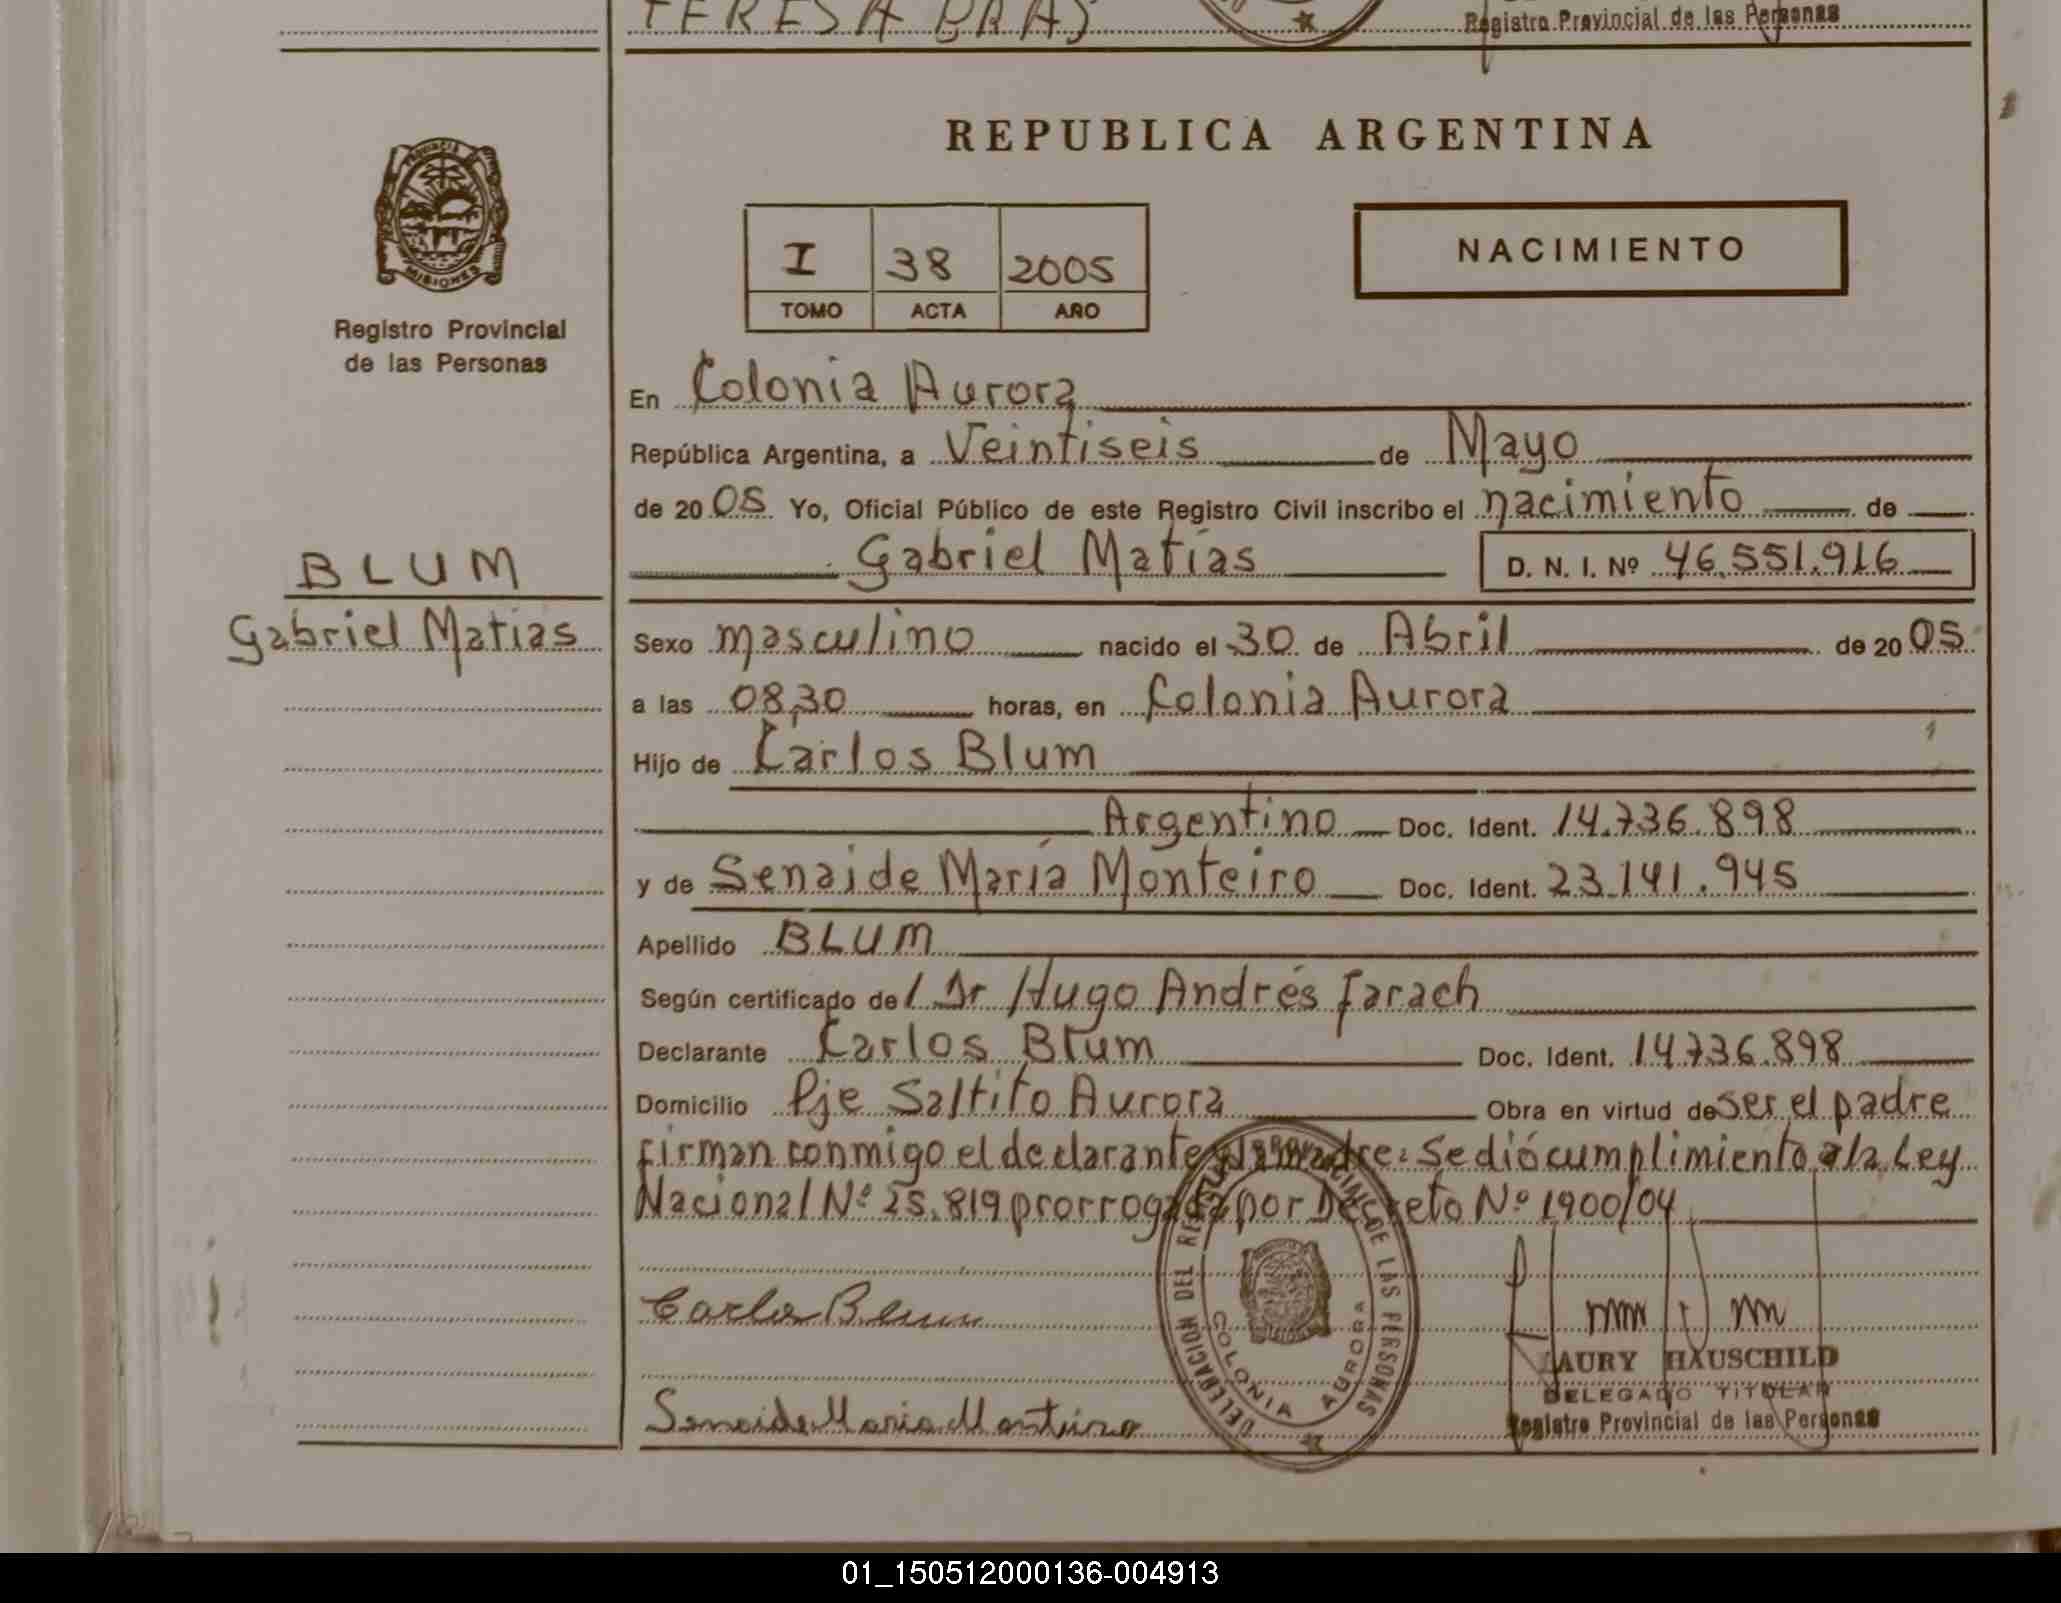 TERESA BRAS
Registro Provincial de las Personas
PROVINCIA DE
MISIONES
Registro Provincial
de las Personas
REPUBLICA ARGENTINA
I 38 2005
TOMO ACTA AÑO
NACIMIENTO
En Colonia Aurora
República Argentina, a Veintiseis de Mayo
de 20 05 Yo, Oficial Público de este Registro Civil inscribo el nacimiento de
Gabriel Matías D. N. I. Nº 46.551.916
BLUM
Gabriel Matías
Sexo masculino nacido el 30 de Abril de 20 05
a las 08,30 horas, en Colonia Aurora
Hijo de Carlos Blum
Argentino Doc. Ident. 14.736.898
y de Senaide María Monteiro Doc. Ident. 23.141.945
Apellido BLUM
Según certificado del Dr Hugo Andrés Farach
Declarante Carlos Blum Doc. Ident. 14.736.898
Domicilio Pje Saltito Aurora Obra en virtud de ser el padre
firman conmigo el declarante y la madre: Se dió cumplimiento a la Ley
Nacional Nº 25.819 prorrogada por Decreto Nº 1900/04
Carlos Blum
Senaide Maria Monteiro
DELEGACION DEL REGISTRO PROVINCIAL DE LAS PERSONAS
COLONIA AURORA
LAURY HAUSCHILD
DELEGADO TITULAR
Registro Provincial de las Personas
01_150512000136-004913